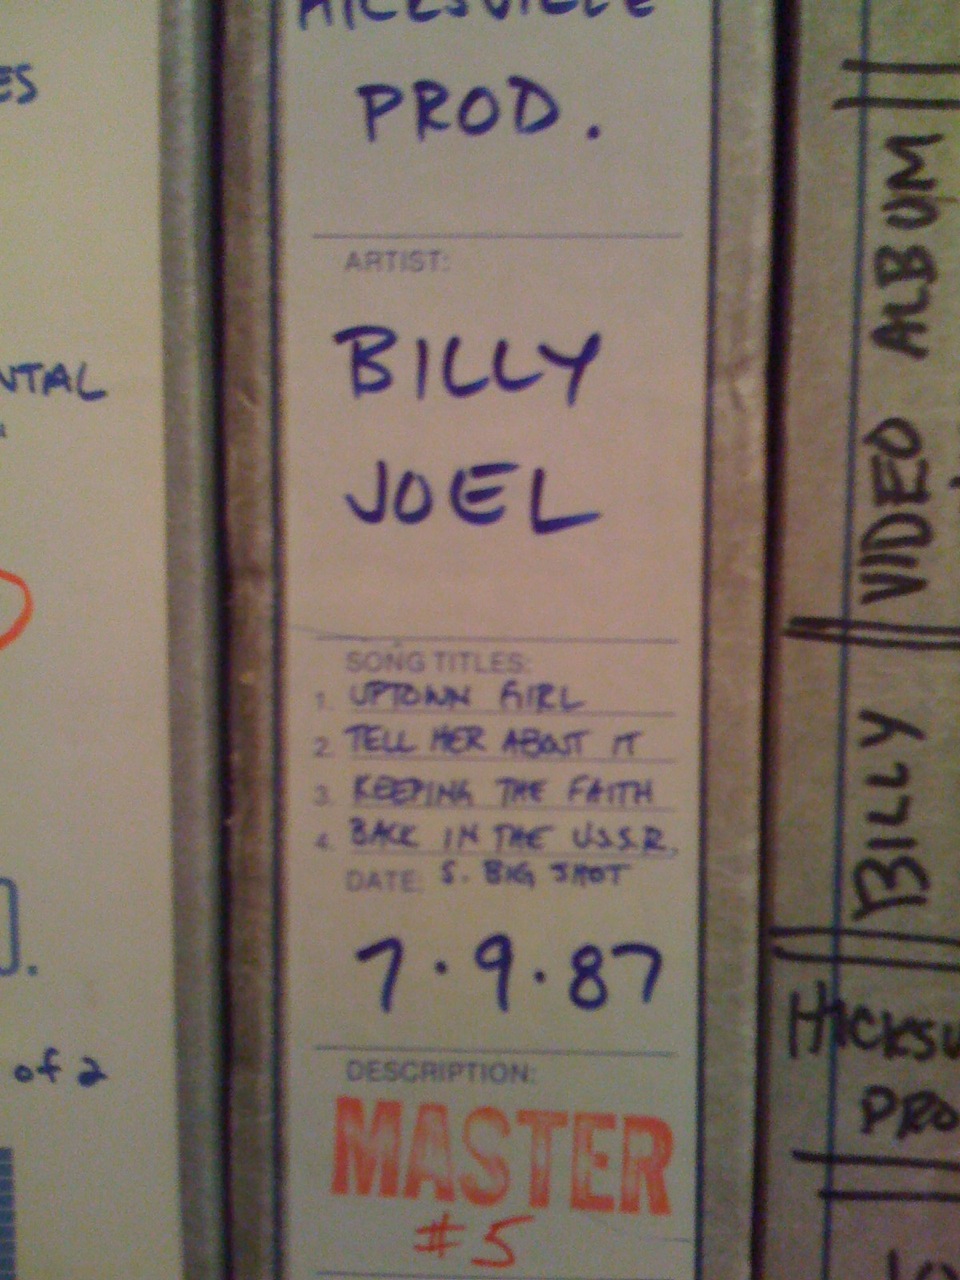 ES
NTAL
of 2
HICKSVILLE
PROD.
ARTIST:
BILLY
JOEL
SONG TITLES:
1. UPTOWN GIRL
2. TELL HER ABOUT IT
3. KEEPING THE FAITH
4. BACK IN THE U.S.S.R.
DATE: 5. BIG SHOT
7.9.87
DESCRIPTION:
MASTER
#5
VIDEO ALBUM
BILLY
HICKSV
PRO